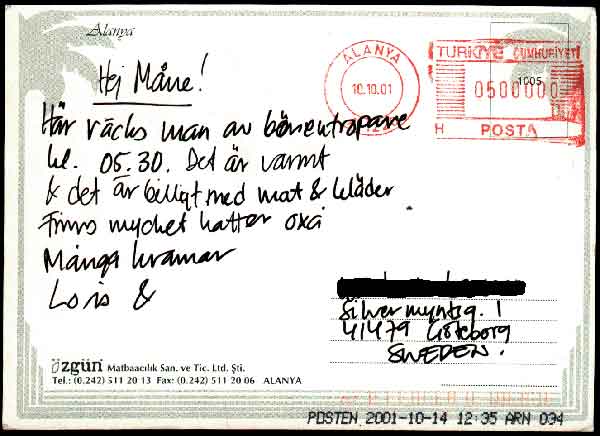 Alanya
Hej Måne!
Här väcks man av böneutropare
kl. 05.30. Det är varmt
& det är billigt med mat & kläder
Finns mycket katter oxå
Många kramar
Lois &
ALANYA
10.10.01
TÜRKİYE CUMHURİYETİ
1005
0500000
H POSTA
Silvermyntsg. 1
41479 Göteborg
SWEDEN.
özgün Matbaacılık San. ve Tic. Ltd. Şti.
Tel.: (0.242) 511 20 13 Fax: (0.242) 511 20 06 ALANYA
POSTEN 2001-10-14 12:35 ARN 034